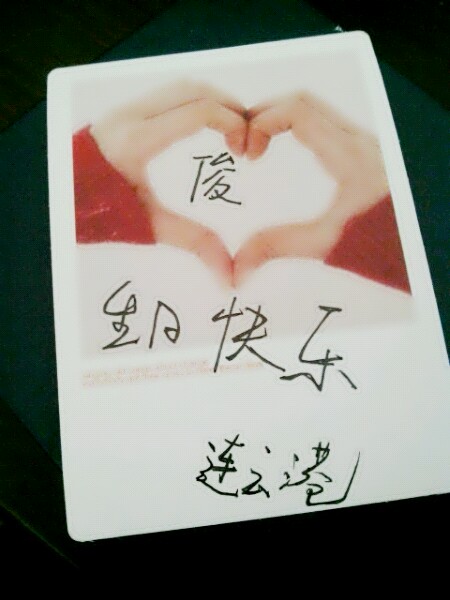 俊
生日快乐
连云港